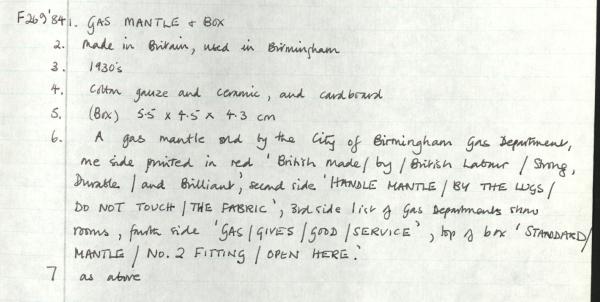 F269'84 1. GAS MANTLE & BOX
2. Made in Britain, used in Birmingham
3. 1930's
4. Cotton gauze and ceramic, and cardboard
5. (Box) 5.5 x 4.5 x 4.3 cm
6. A gas mantle sold by the City of Birmingham Gas Department,
one side printed in red 'British made / by / British Labour / Strong,
Durable / and Brilliant', second side 'HANDLE MANTLE / BY THE LUGS /
DO NOT TOUCH / THE FABRIC', 3rd side list of Gas Departments show
rooms, fourth side 'GAS / GIVES / GOOD / SERVICE', top of box 'STANDARD /
MANTLE / NO. 2 FITTING / OPEN HERE.'
7 as above